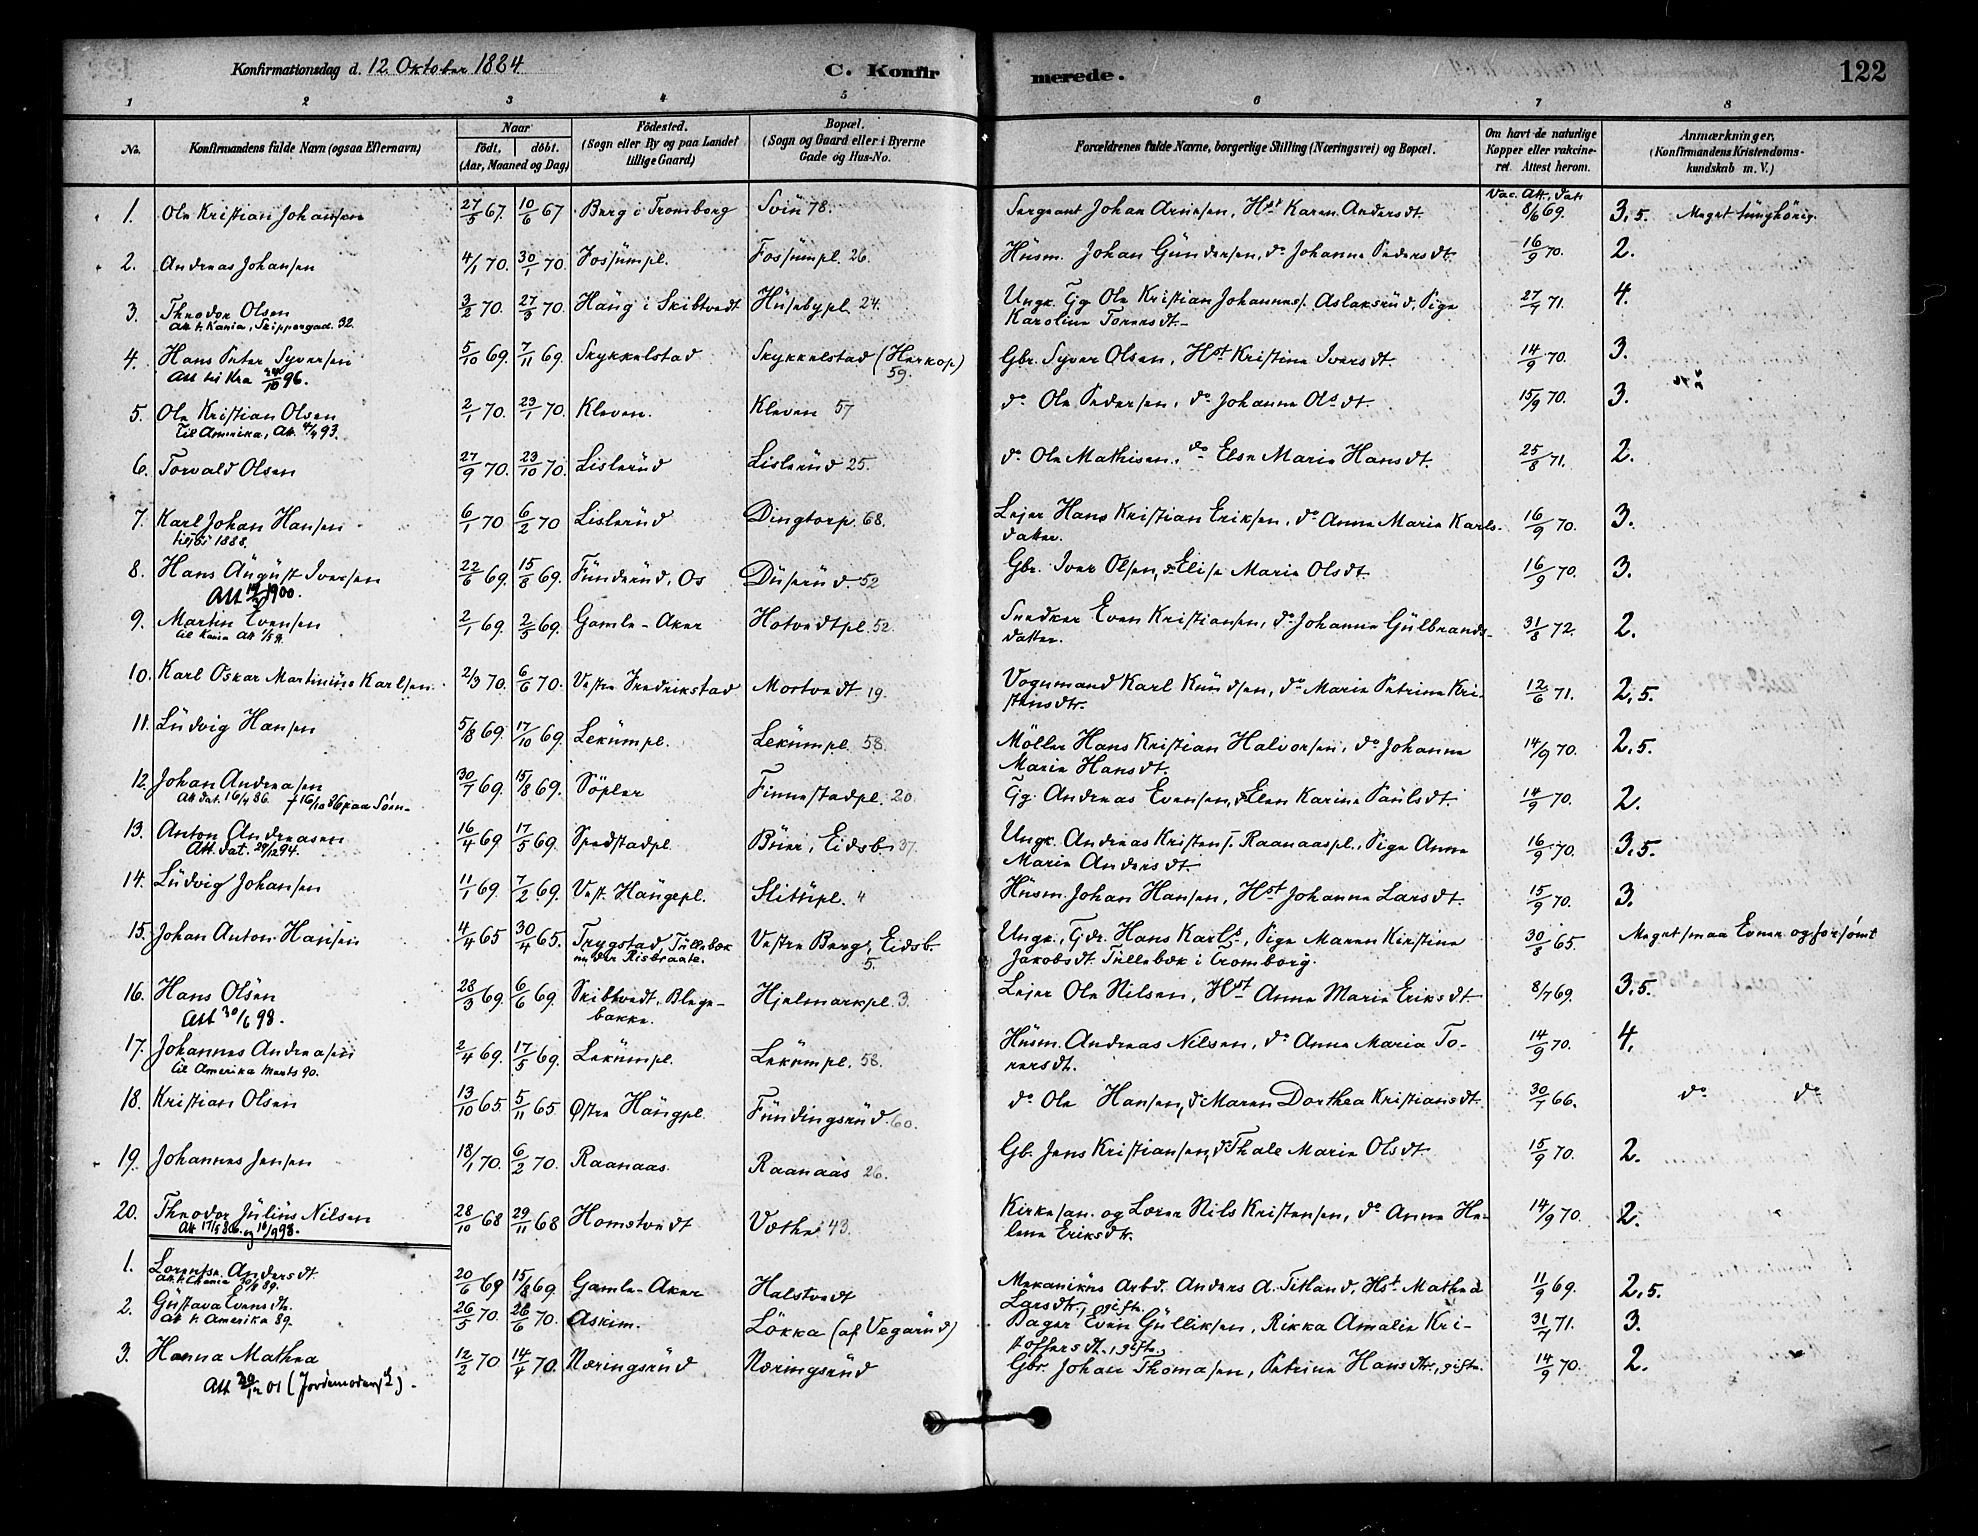 Konfirmationsdag d. 12 Oktober 1884
C. Konfirmerede.
122
1 2 3 4 5 6 7 8
No.
Konfirmandens fulde Navn (ogsaa Efternavn)
Naar
födt, döbt.
(Aar, Maaned og Dag)
Födested.
(Sogn eller By og paa Landet
tillige Gaard)
Bopæl.
(Sogn og Gaard eller i Byerne
Gade og Hus-No.
Forældrenes fulde Navne, borgerlige Stilling (Næringsvei) og Bopæl.
Om havt de naturlige
Kopper eller vakcine-
ret. Attest herom.
Anmærkninger,
(Konfirmandens Kristendoms-
kundskab m. V.)
Vac. Att. dat.
1. Ole Kristian Johansen 27/5 67. 10/6 67 Berg i Tromborg Svin 78. Sergeant Johan Arnesen, Hst Karen Andersdt. 8/6 69. 3,5. Meget tunghörig.
2. Andreas Johansen 4/1 70. 30/1 70. Fossumpl. Fossumpl. 26. Husm. Johan Gundersen, do Johanne Pedersdt. 16/9 70. 2.
3. Theodor Olsen 3/2 70. 27/3 70. Haug i Skibtvedt Husebypl. 24. Ungk. Gg Ole Kristian Johanness. Aslaksrud, Pige 27/7 71. 4.
Att. t. Kania, Skippergad. 32.
Karoline Torersdt.
4. Hans Peter Syversen 5/10 69. 7/11 69. Skykkelstad Skykkelstad (Herkop) 59. Gbr. Syver Olsen, Hst Kristine Iversdt. 14/9 70. 3.
Att til Kra 24/10 96.
5. Ole Kristian Olsen 2/1 70. 23/1 70. Kleven. Kleven 57 do Ole Pedersen, do Johanne Olsdt. 15/9 70. 3.
Til Amerika, Att. 4/4 93.
6. Torvald Olsen 27/9 70. 23/10 70. Lislerud Lislerud 25. do Ole Mathisen, do Else Marie Hansdt. 25/8 71. 2.
7. Karl Johan Hansen 6/1 70 6/2 70 Lislerud Dingtorp. 68. Lejer Hans Kristian Eriksen, do Anne Marie Karls- 16/9 70. 3.
1888.
datter.
8. Hans August Iversen 22/6 69. 15/8 69. Funderud, Os Duserud 52 Gbr. Iver Olsen, do Elise Marie Olsdt. 16/9 70. 3.
Att 1900.
9. Martin Evensen 2/1 69. 2/5 69. Gamle-Aker Hotvedtpl. 52. Snedker Even Kristiansen, do Johanne Gulbrands- 31/8 72. 2.
til Kania Att
datter.
10. Karl Oskar Martinius Karlsen 2/3 70. 6/6 70. Vestre Fredrikstad Mortvedt 19. Vognmand Karl Knudsen, do Marie Petrine Kri- 12/6 71. 2,5.
stensdtr.
11. Ludvig Hansen 5/8 69. 17/10 69. Lekumpl. Lekumpl. 58. Möller Hans Kristian Halvorsen, do Johanne 14/9 70. 2,5.
Marie Hansdt.
12. Johan Andreasen 30/7 69. 15/8 69. Söpler Finnestadpl. 20. Gg. Andreas Evensen, do Elen Karine Paulsdt. 14/9 70. 2.
Att dat. 16/4 86. † 16/10 86 paa Söen
13. Anton Andreasen 16/4 69 17/5 69. Spedstadpl. Buer, Eidsb. 37. Ungk. Andreas Kristens. Raanaaspl., Pige Anne 16/9 70. 3,5.
Att. dat. 29/12 94.
Marie Andersdt.
14. Ludvig Johansen 11/1 69. 7/2 69. Vest. Haugepl. Slitupl. 4 Husm. Johan Hansen, Hst Johanne Larsdt. 15/9 70. 3.
15. Johan Anton Hansen 4/4 65 30/4 65. Trygstad, Tullebæk Vestre Berg, Eidsb. Ungk., Gdr. Hans Karls., Pige Maren Kirstine 30/8 65. Meget smaa Evner og forsömt
under Risbraate. 5. Jakobsdt. Tullebæk i Tromborg.
16. Hans Olsen 28/3 69. 6/6 69. Skibtvedt, Blege- Hjelmarkpl. 3. Lejer Ole Nilsen, Hst Anne Marie Eriksdt 8/7 69. 3,5.
Att 30/6 98.
bakke.
17. Johannes Andreasen 2/4 69. 17/5 69. Lekumpl. Lekumpl. 58. Husm. Andreas Nilsen, do Anne Maria To- 14/9 70. 4.
til Amerika Marts 90.
rersdt.
18. Kristian Olsen 13/10 65. 5/11 65. Östre Haugpl. Fundingsrud. 60. do Ole Hansen, do Maren Dorthea Kristiansdt. 30/7 66. do do
19. Johannes Jensen 18/1 70. 6/2 70. Raanaas. Raanaas 26. Gb. Jens Kristiansen, do Thale Marie Olsdt. 15/9 70. 2.
20. Theodor Julius Nilsen 28/10 68 29/11 68 Homstvedt Vothe 43. Kirkesan. og Lærer Nils Kristensen, do Anne He- 14/9 70. 2.
Att 17/5 86. og 10/9 98.
lene Eriksdtr.
1. Lorentse Andersdt. 20/6 69 15/8 69. Gamle-Aker Halstvedt Mekanikus Arbd. Anders A. Titland, Hst. Mathea 11/9 69. 2,5.
Att. t. Chania 30/8 89.
Larsdtr., gifte.
2. Gustava Evensdtr. 26/5 70. 26/6 70. Askim. Lökka (af Vegarud) Bager Even Gulliksen, Rikka Amalie Kri- 31/7 71. 3.
Att t. Amerika 89.
stoffersdt., gifte.
3. Hanna Mathea 12/2 70 14/4 70. Næringsrud Næringsrud Gbr. Johan Thomasen, Petrine Hansdtr., gifte. 14/9 70. 2.
Att 30/12 01 (Jordemodersk).